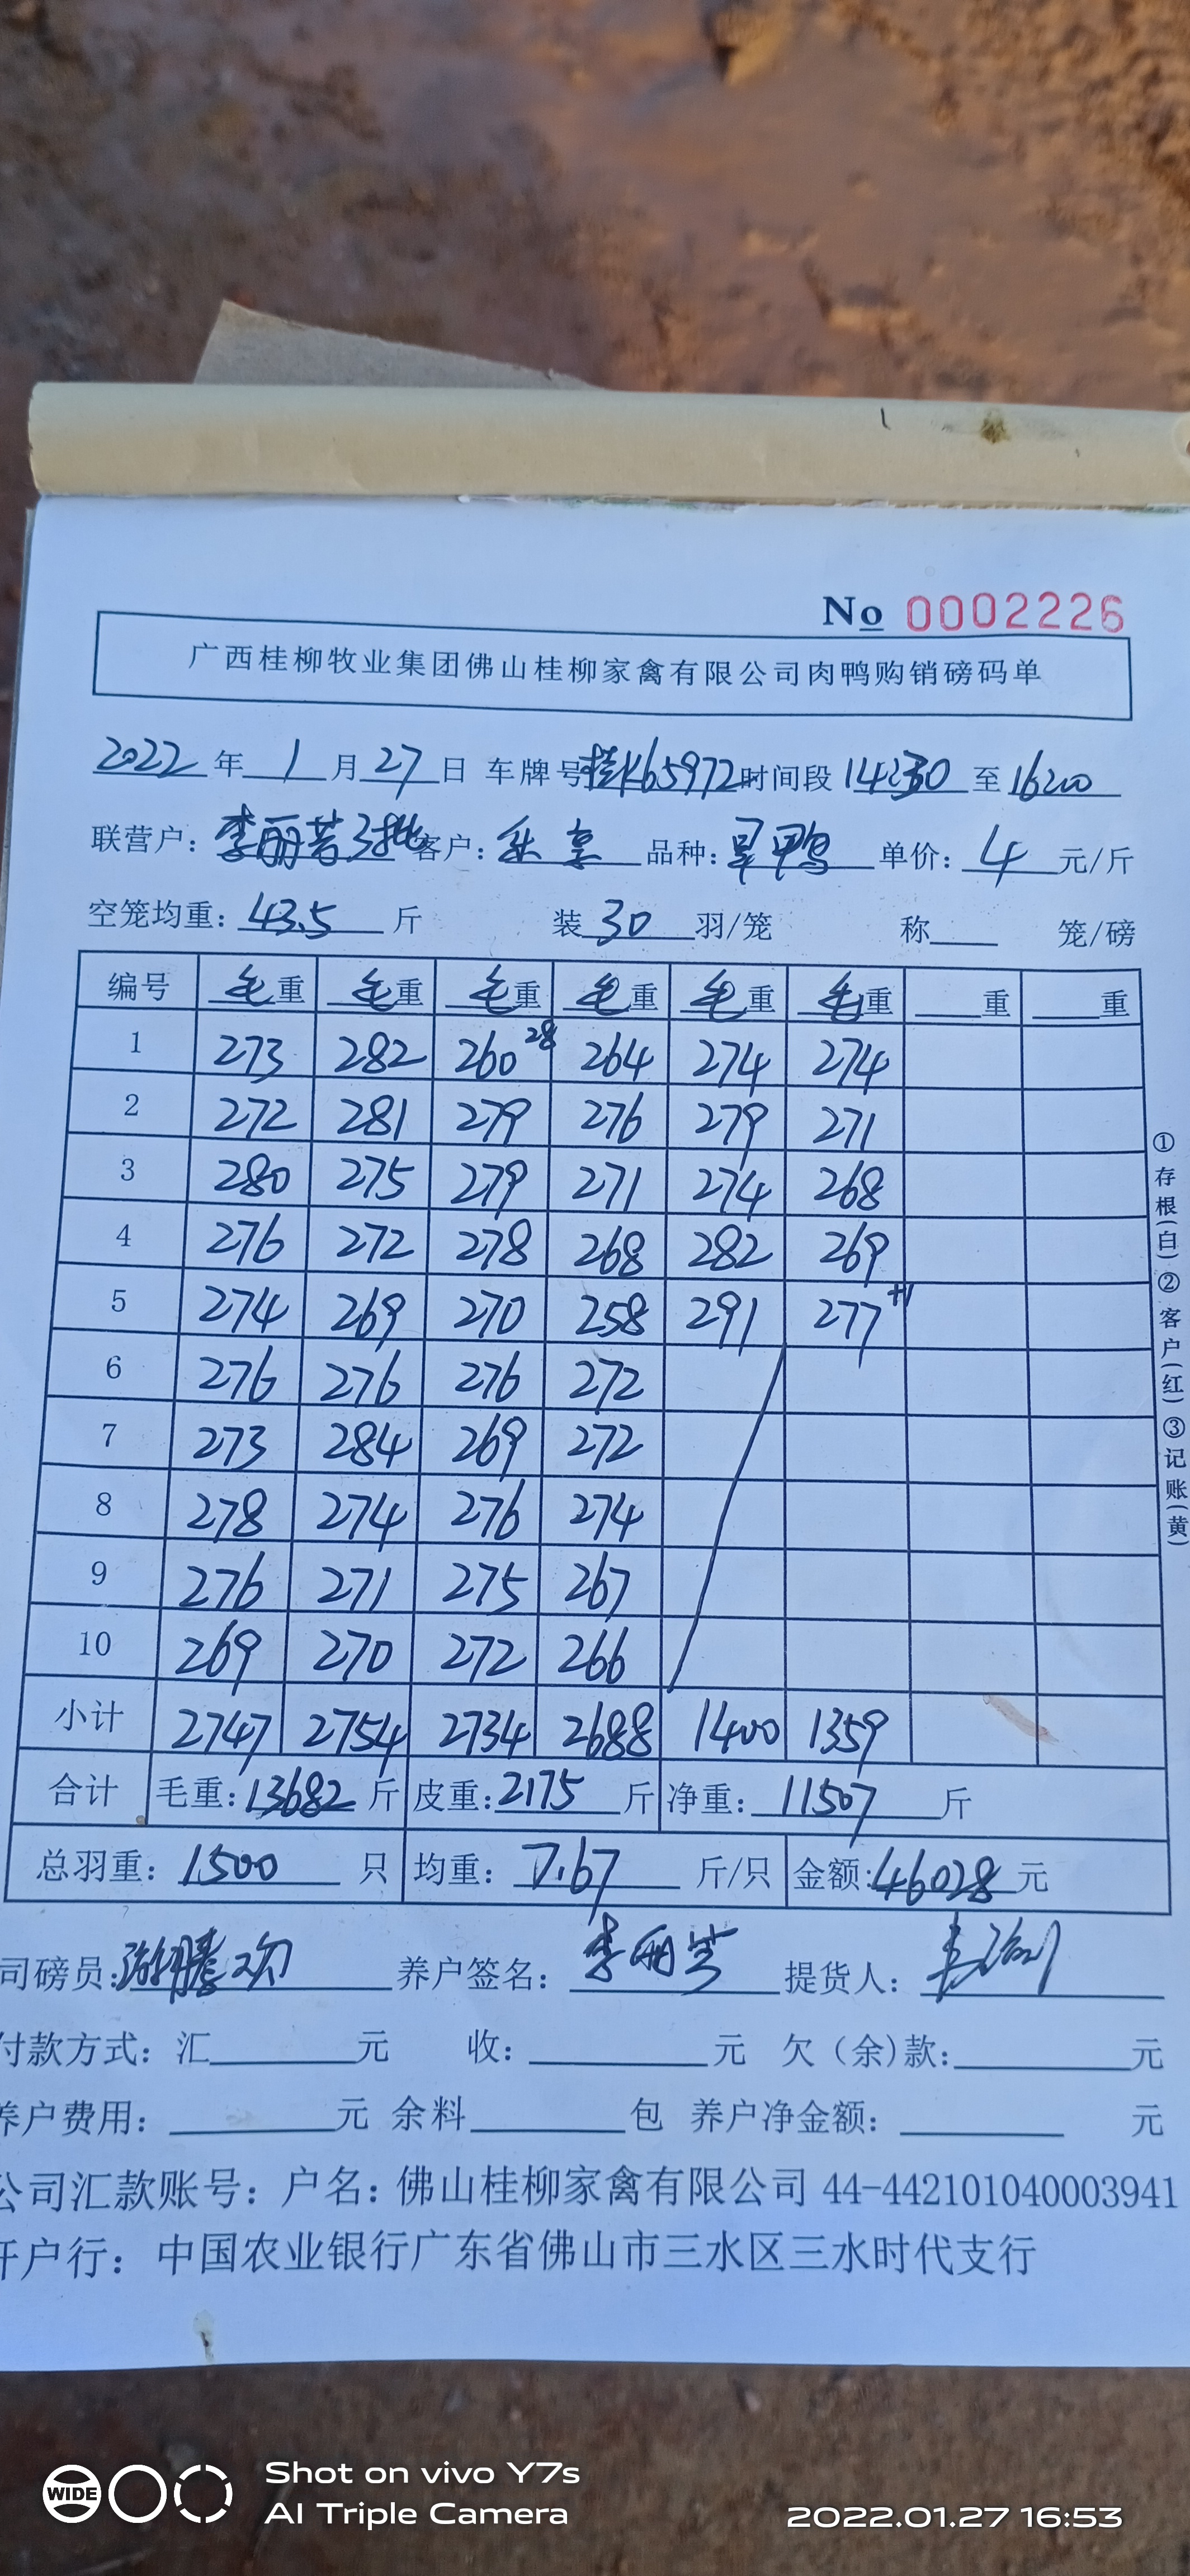 No 0002226
广西桂柳牧业集团佛山桂柳家禽有限公司肉鸭购销磅码单
2022 年 1 月 27 日 车牌号 桂K65972 时间段 14:30 至 16:00
联营户: 李丽芳3批 客户: 乐享 品种: 旱鸭 单价: 4 元/斤
空笼均重: 43.5 斤 装 30 羽/笼 称 笼/磅
编号 毛重 毛重 毛重 毛重 毛重 毛重 重 重
1 273 282 260 28 264 274 274
2 272 281 279 276 279 271
3 280 275 279 271 274 268
4 276 272 278 268 282 269
5 274 269 270 258 291 277 +1
6 276 276 276 272
7 273 284 269 272
8 278 274 276 274
9 276 271 275 267
10 269 270 272 266
小计 2747 2754 2734 2688 1400 1359
合计 毛重: 13682 斤 皮重: 2175 斤 净重: 11507 斤
总羽重: 1500 只 均重: 7.67 斤/只 金额: 46028 元
司磅员: 养户签名: 提货人:
付款方式: 汇 元 收: 元 欠(余)款: 元
养户费用: 元 余料 包 养户净金额: 元
公司汇款账号: 户名: 佛山桂柳家禽有限公司 44-442101040003941
开户行: 中国农业银行广东省佛山市三水区三水时代支行
①存根(白)②客户(红)③记账(黄)
WIDE
Shot on vivo Y7s
AI Triple Camera
2022.01.27 16:53